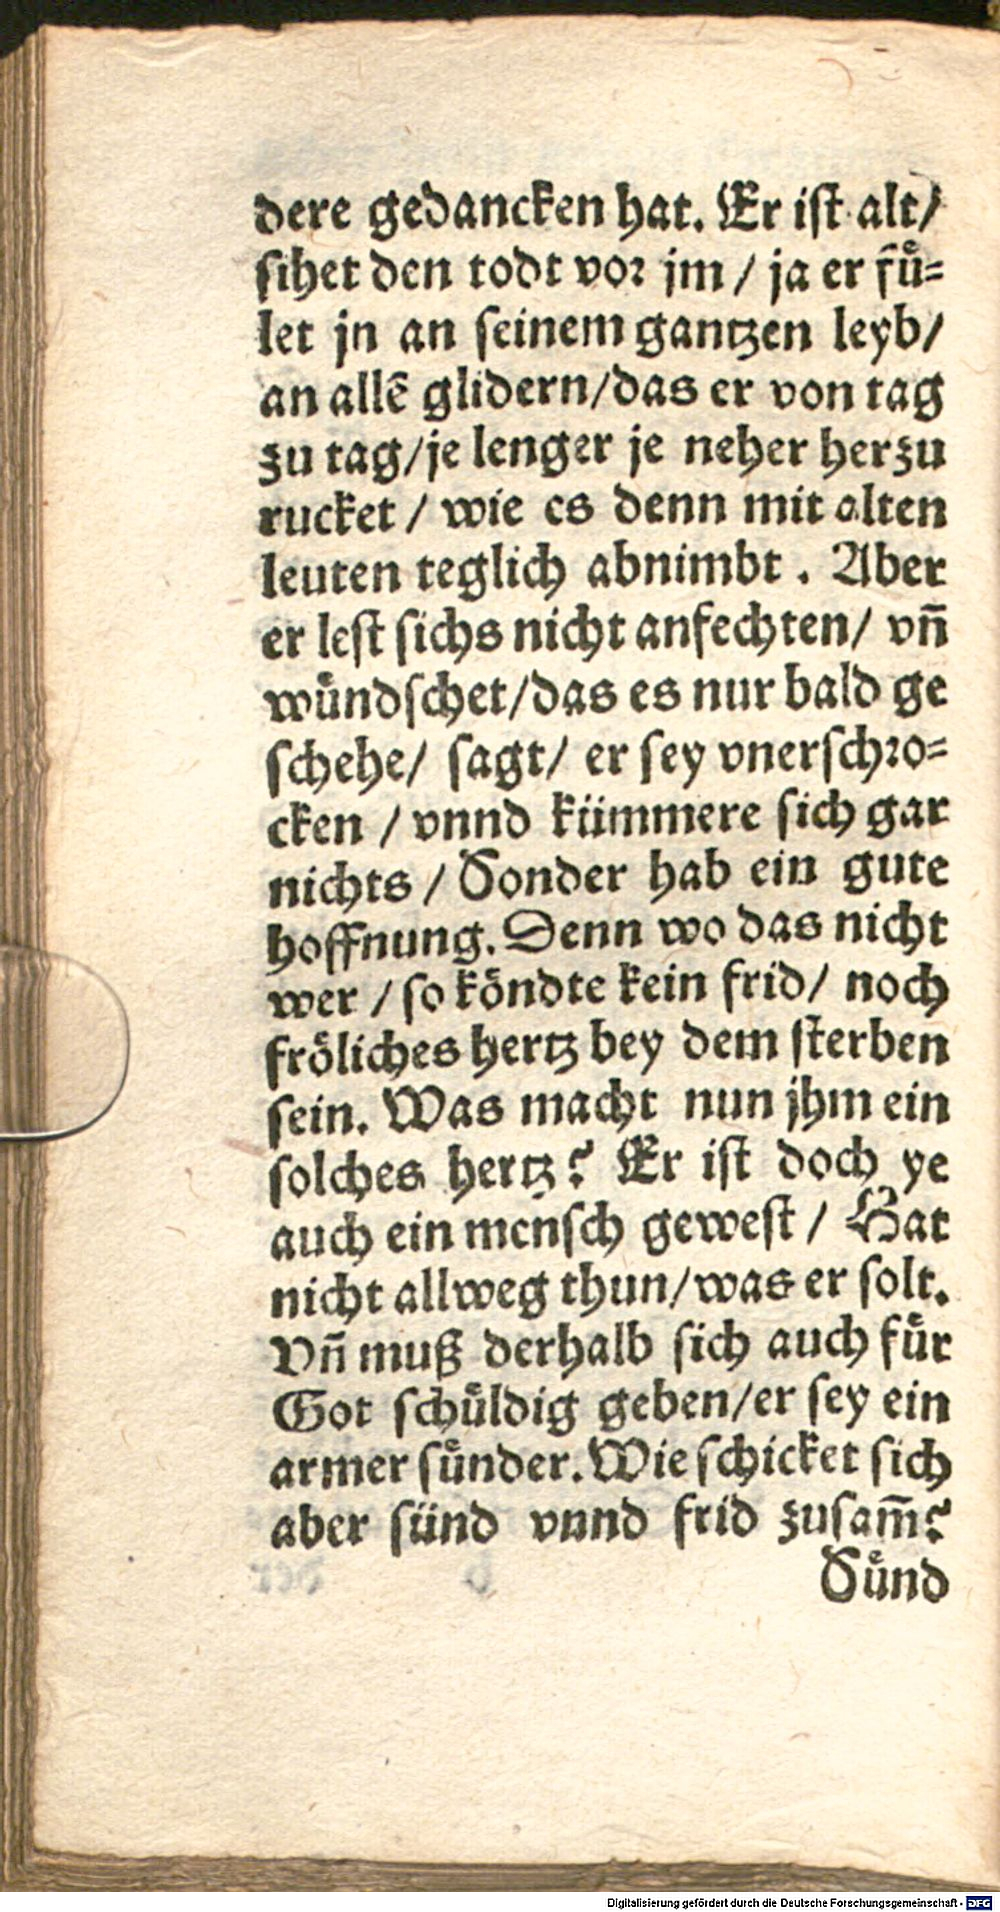 dere gedancken hat. Er iſt alt/
ſihet den todt vor jm / ja er fuͤ-
let jn an ſeinem gantzen leyb/
an allē glidern/das er von tag
zu tag/je lenger je neher herzu
rucket / wie es denn mit alten
leuten teglich abnimbt . Aber
er leſt ſichs nicht anfechten/ vñ
wuͤndſchet/das es nur bald ge
ſchehe/ ſagt/ er ſey vnerſchꝛo-
cken / vnnd kümmere ſich gar
nichts / Sonder hab ein gute
hoffnung. Denn wo das nicht
wer / ſo koͤndte kein frid/ noch
froͤliches hertz bey dem ſterben
ſein. Was macht nun jhm ein
ſolches hertz? Er iſt doch ye
auch ein menſch geweſt / Hat
nicht allweg thun/was er ſolt.
Vñ muß derhalb ſich auch fuͤr
Got ſchuͤldig geben/er ſey ein
armer ſuͤnder. Wie ſchicket ſich
aber ſünd vnnd frid zuſam̄?
Suͤnd
Digitalisierung gefördert durch die Deutsche Forschungsgemeinschaft - DFG